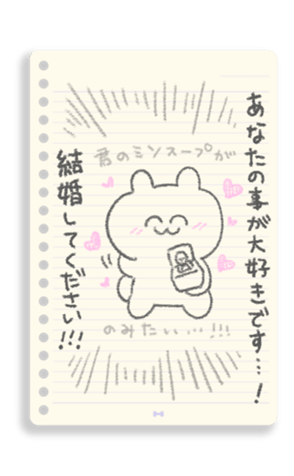 あなたの事が大好きです…!
君のミソスープが
のみたい…!!!
結婚してください!!!